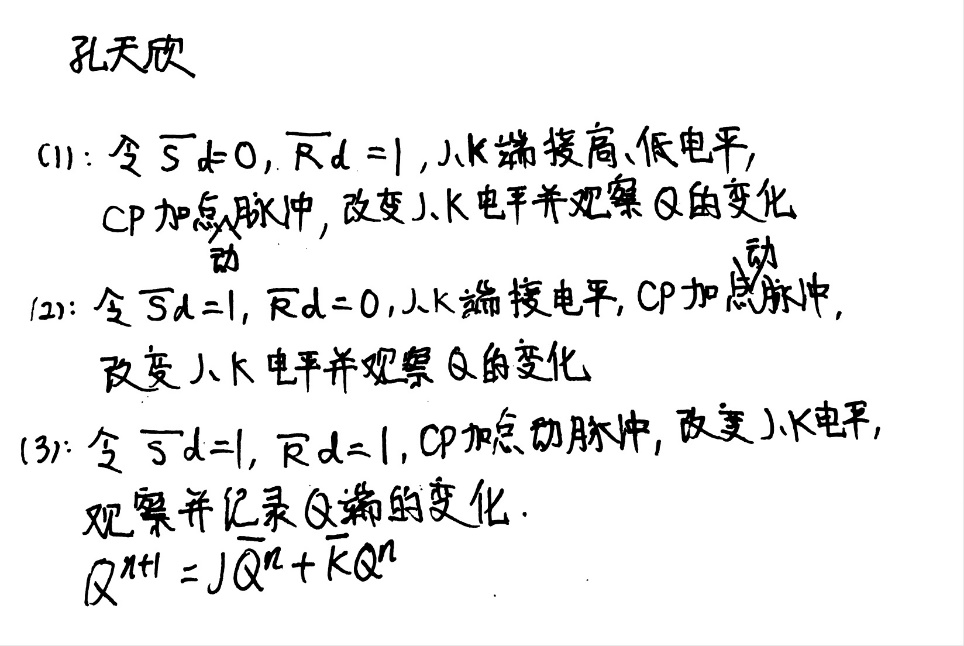 孔天欣
(1): 令 S̅d=0, R̅d=1, J、K端接高、低电平,
CP加点动脉冲, 改变J、K电平并观察Q的变化
(2): 令 S̅d=1, R̅d=0, J、K端接电平, CP加点动脉冲,
改变J、K电平并观察Q的变化
(3): 令 S̅d=1, R̅d=1, CP加点动脉冲, 改变J、K电平,
观察并记录Q端的变化.
Qⁿ⁺¹ = JQ̅ⁿ + K̅Qⁿ